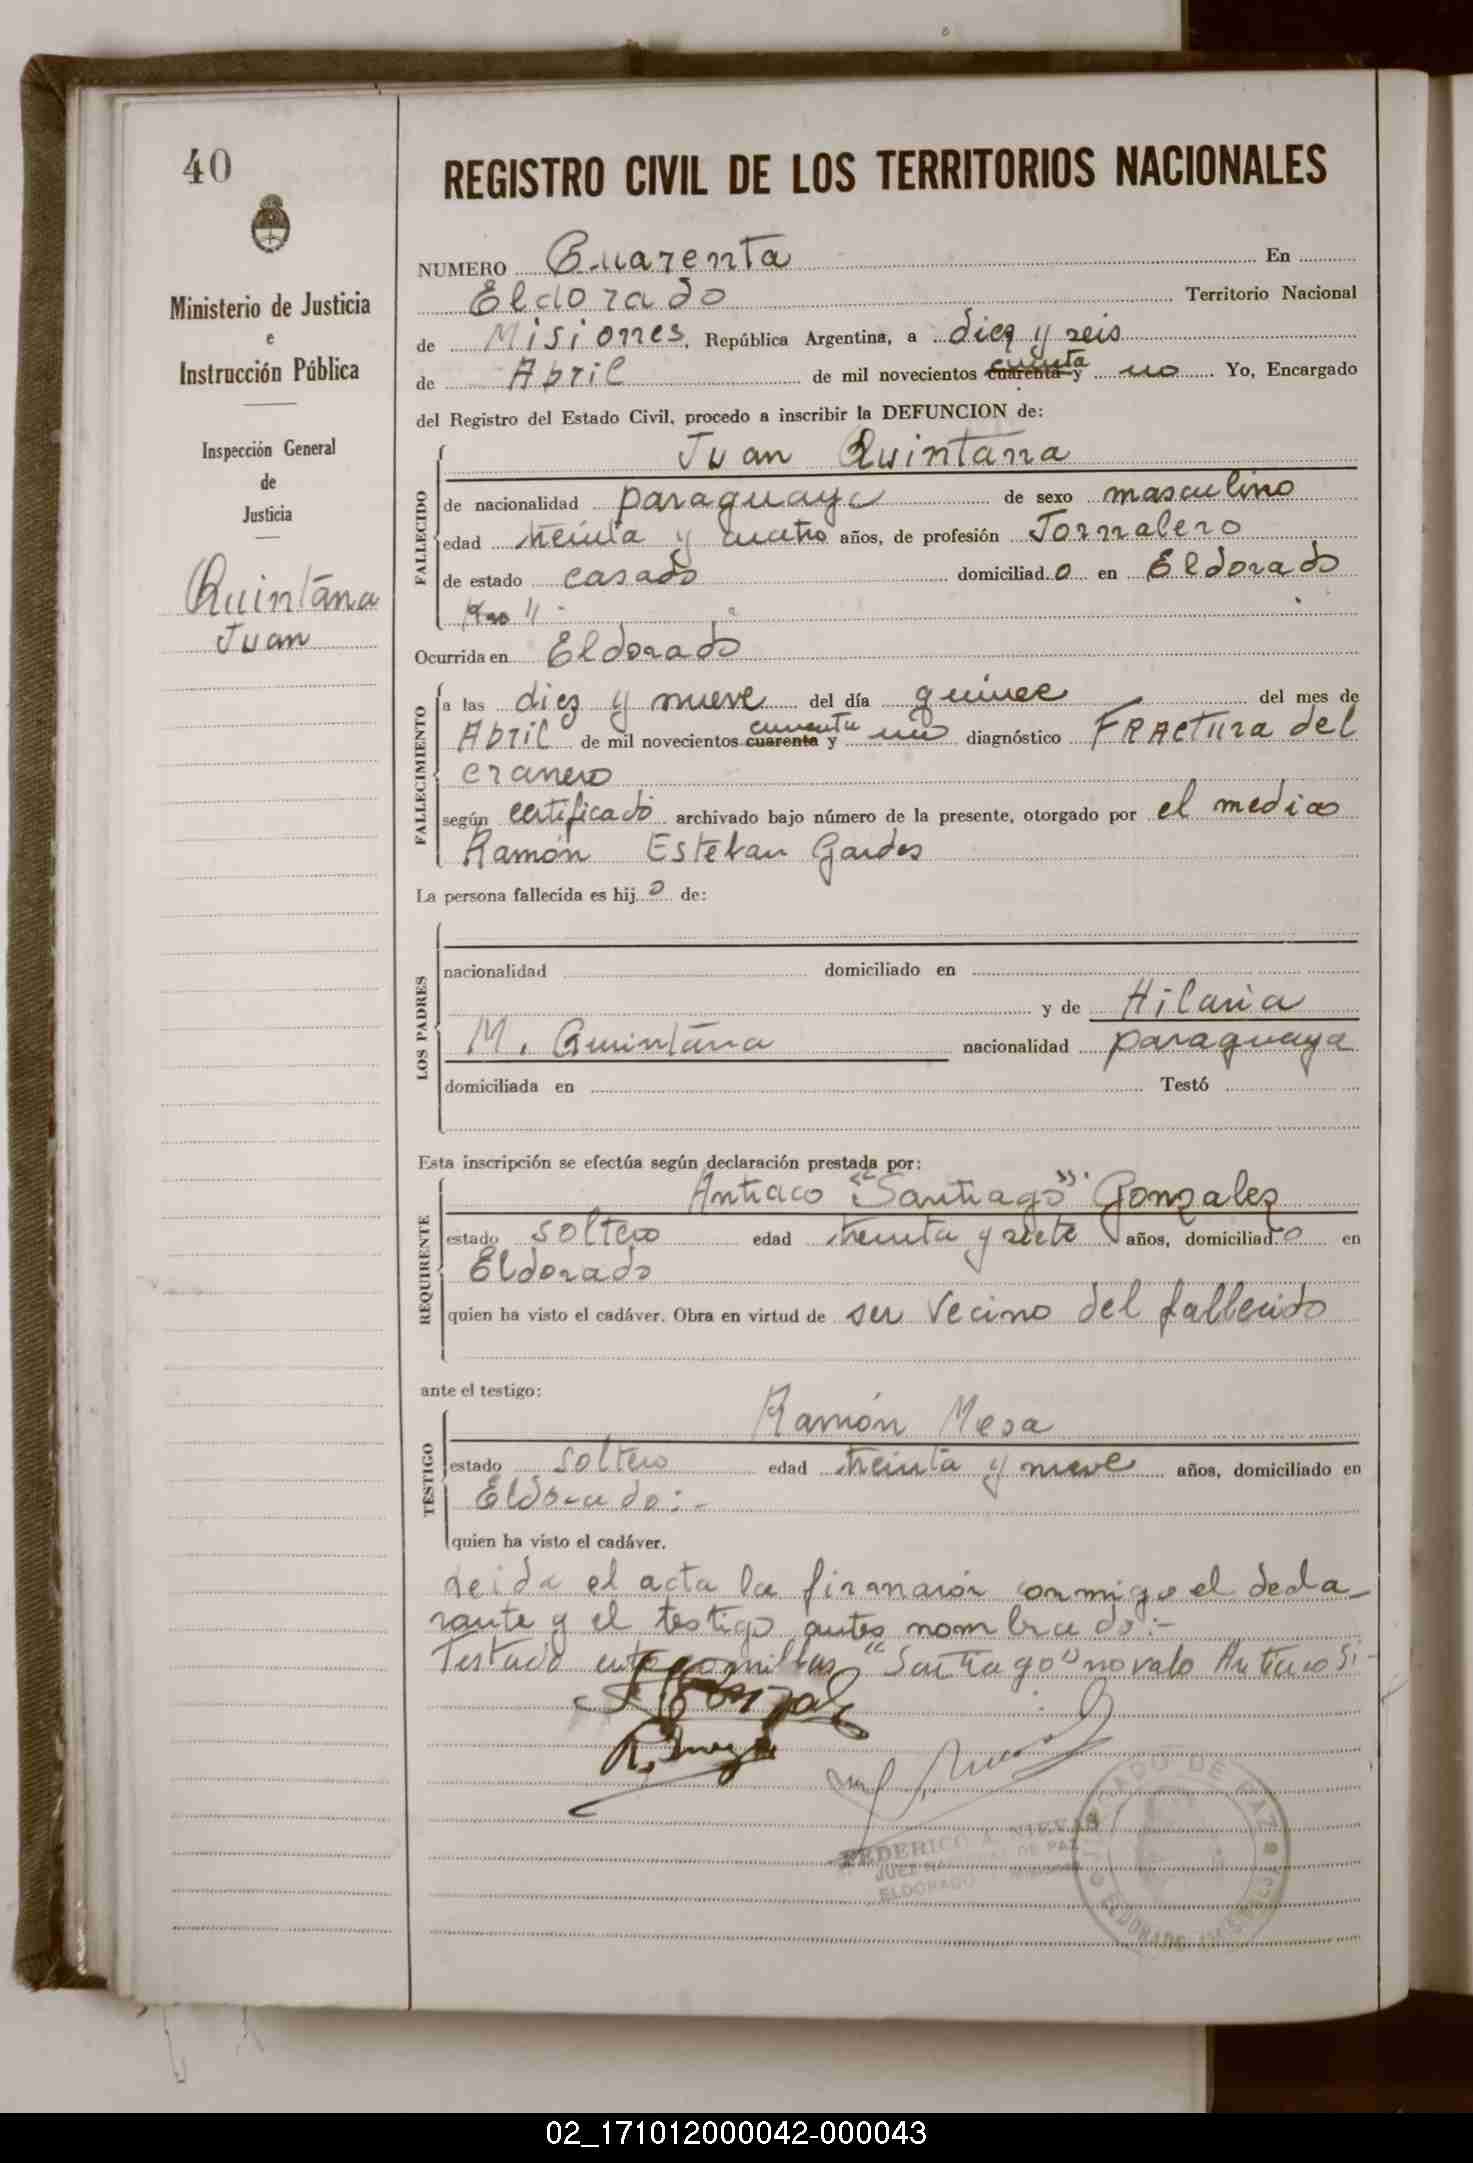 40
Ministerio de Justicia
e
Instrucción Pública
Inspección General
de
Justicia
Quintana
Juan
REGISTRO CIVIL DE LOS TERRITORIOS NACIONALES
NUMERO Cuarenta En
Eldorado Territorio Nacional
de Misiones, República Argentina, a diez y seis
de Abril de mil novecientos cuarenta y cincuenta uno Yo, Encargado
del Registro del Estado Civil, procedo a inscribir la DEFUNCION de:
FALLECIDO
Juan Quintana
de nacionalidad paraguaya de sexo masculino
edad treinta y cuatro años, de profesión Jornalero
de estado casado domiciliad o en Eldorado
Ocurrida en Eldorado
FALLECIMIENTO
a las diez y nueve del día quince del mes de
Abril de mil novecientos cuarenta cincuenta y un diagnóstico Fractura del
craneo
según certificado archivado bajo número de la presente, otorgado por el medico
Ramón Esteban Gardes
La persona fallecida es hij o de:
LOS PADRES
nacionalidad domiciliado en
y de Hilaria
M. Quintana nacionalidad paraguaya
domiciliada en Testó
Esta inscripción se efectúa según declaración prestada por:
REQUIRENTE
Antiaco "Santiago" Gonzalez
estado soltero edad treinta y siete años, domiciliad o en
Eldorado
quien ha visto el cadáver. Obra en virtud de ser vecino del fallecido
ante el testigo:
TESTIGO
Ramón Mesa
estado soltero edad treinta y nueve años, domiciliado en
Eldorado:-
quien ha visto el cadáver.
Leida el acta la firmaron conmigo el decla-
rante y el testigo antes nombrado:-
Testado entre comillas "Santiago" no vale Antiaco Si-
FEDERICO A. NIEVAS
JUEZ NACIONAL DE PAZ
ELDORADO MISIONES
JUZGADO DE PAZ
ELDORADO (MISIONES)
02_171012000042-000043